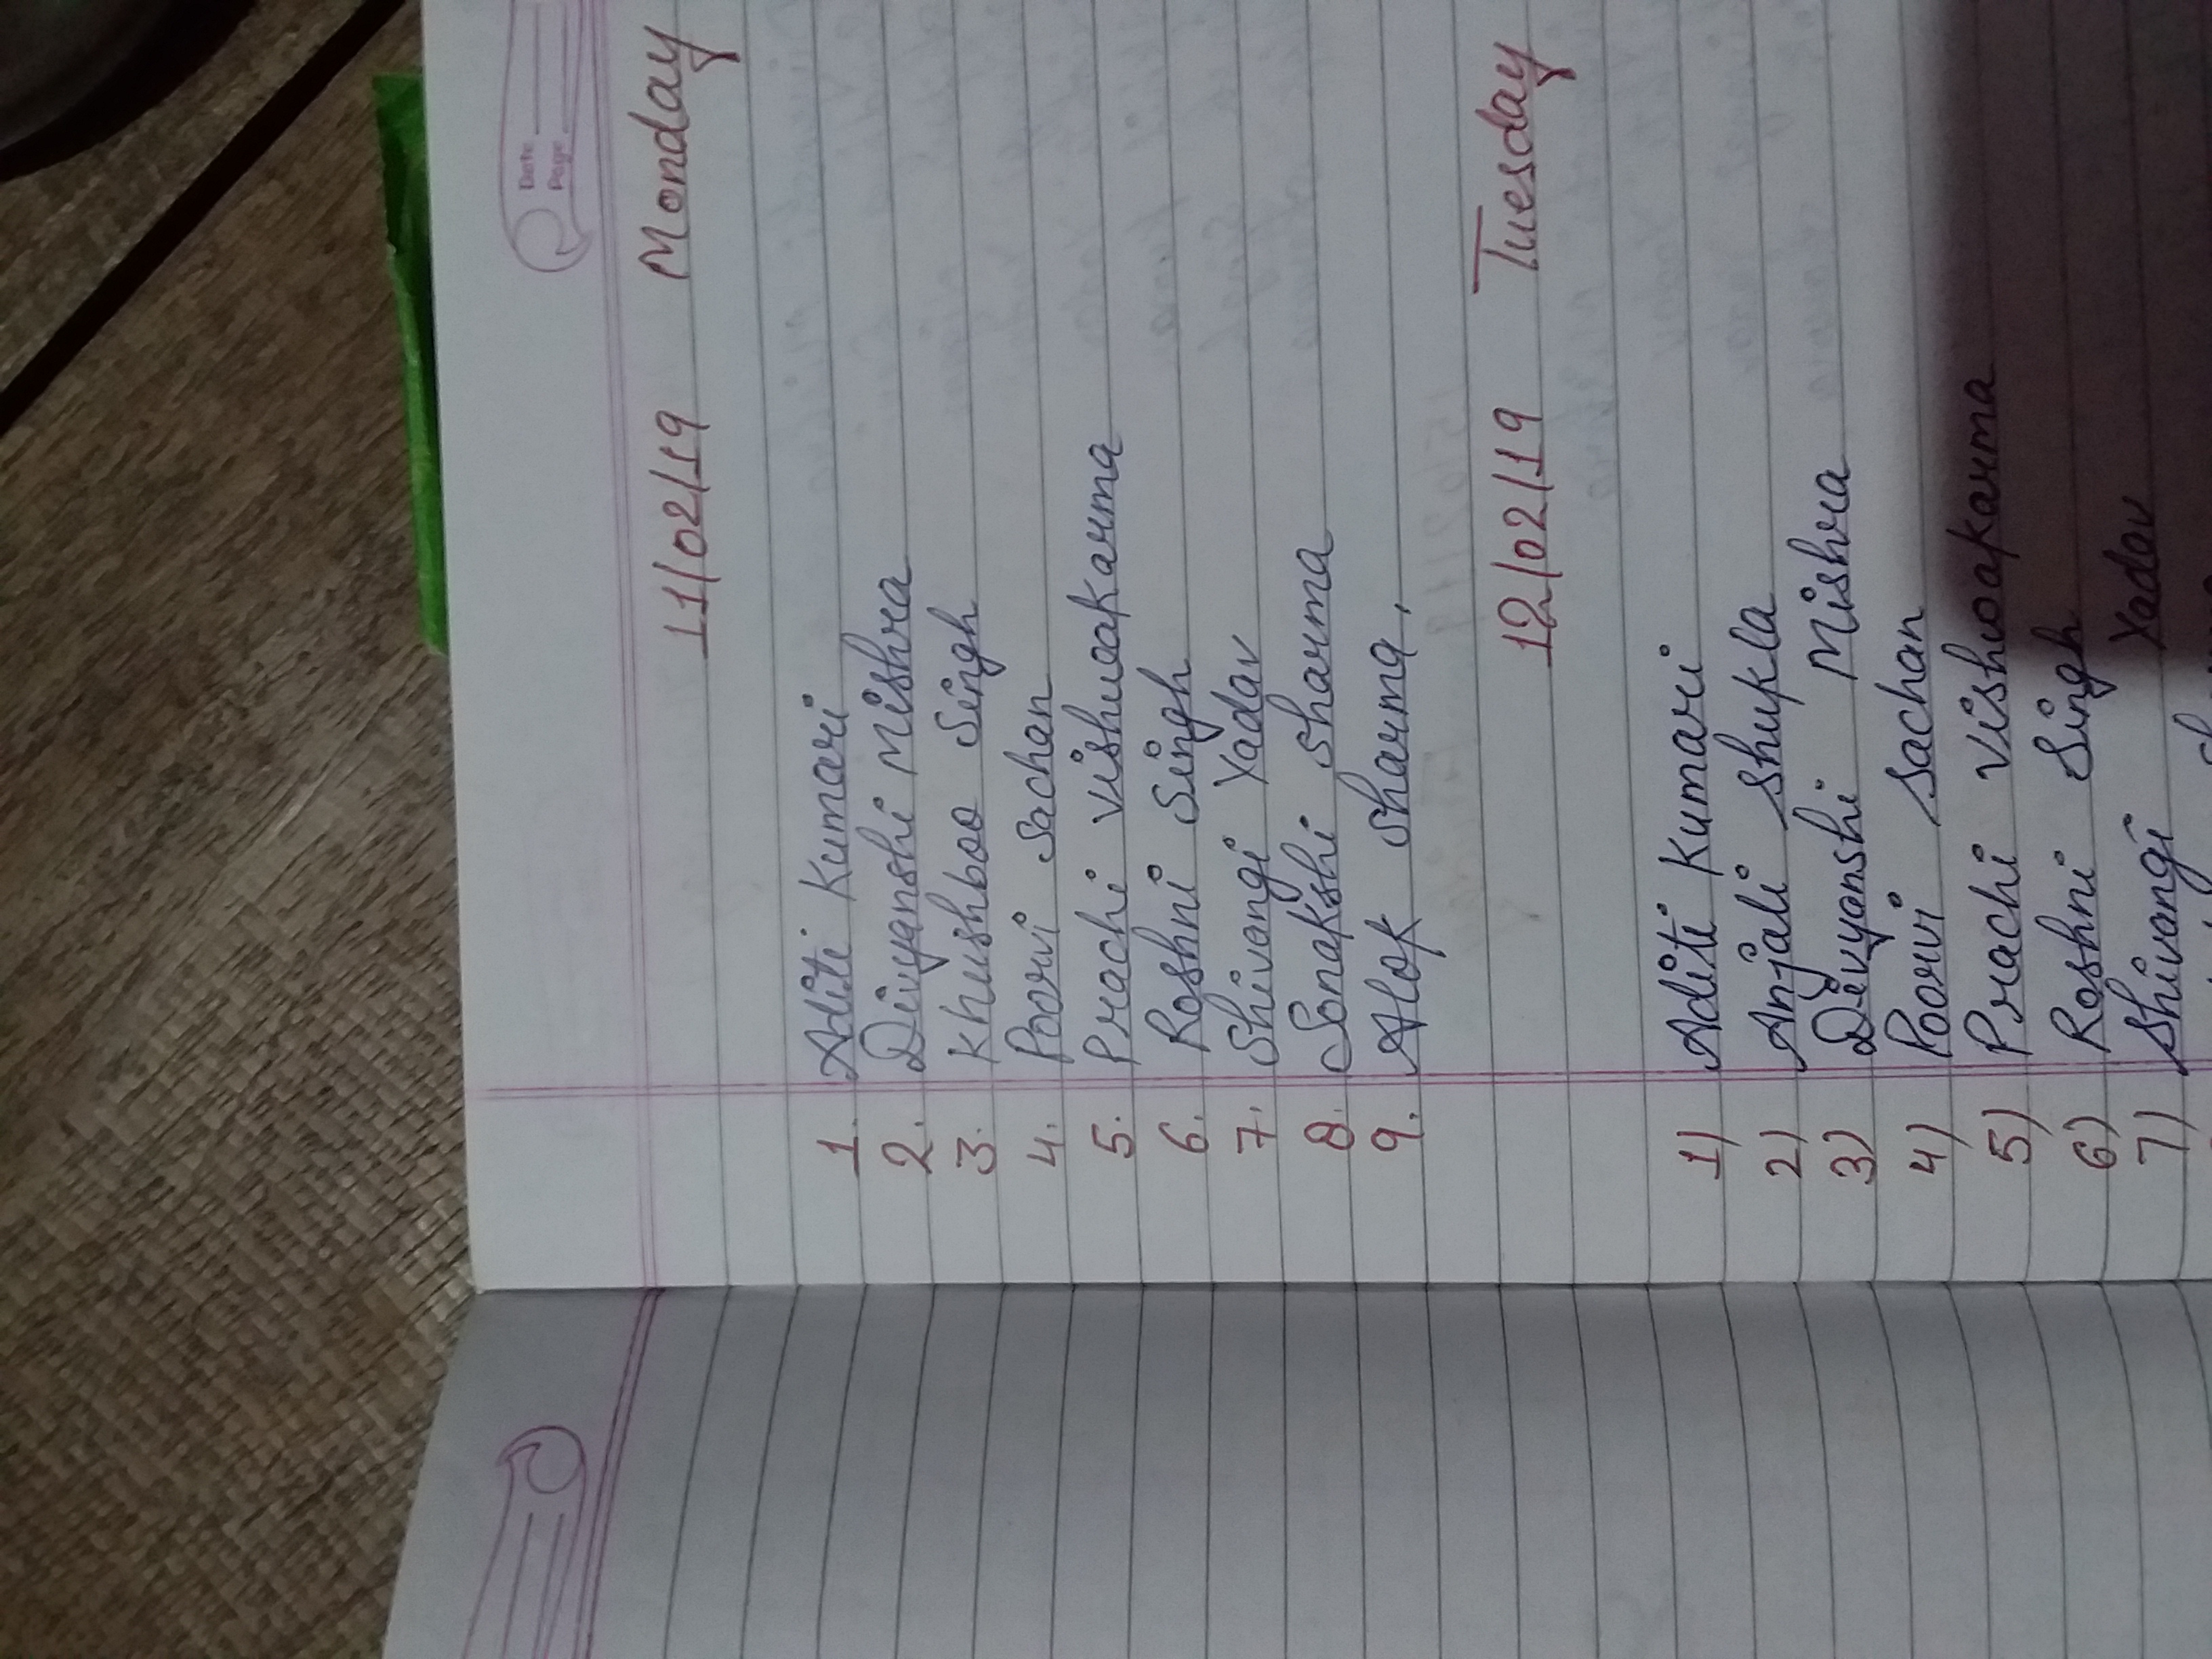 Date
Page
11/02/19 Monday
1. Aditi Kumari
2. Divyanshi Mishra
3. Khushboo Singh
4. Poorvi Sachan
5. Prachi Vishwakarma
6. Roshni Singh
7. Shivangi Yadav
8. Sonakshi Sharma
9. Alok Sharma.
12/02/19 Tuesday
1) Aditi Kumari
2) Anjali Shukla
3) Divyanshi Mishra
4) Poorvi Sachan
5) Prachi Vishwakarma
6) Roshni Singh
7) Shivangi Yadav